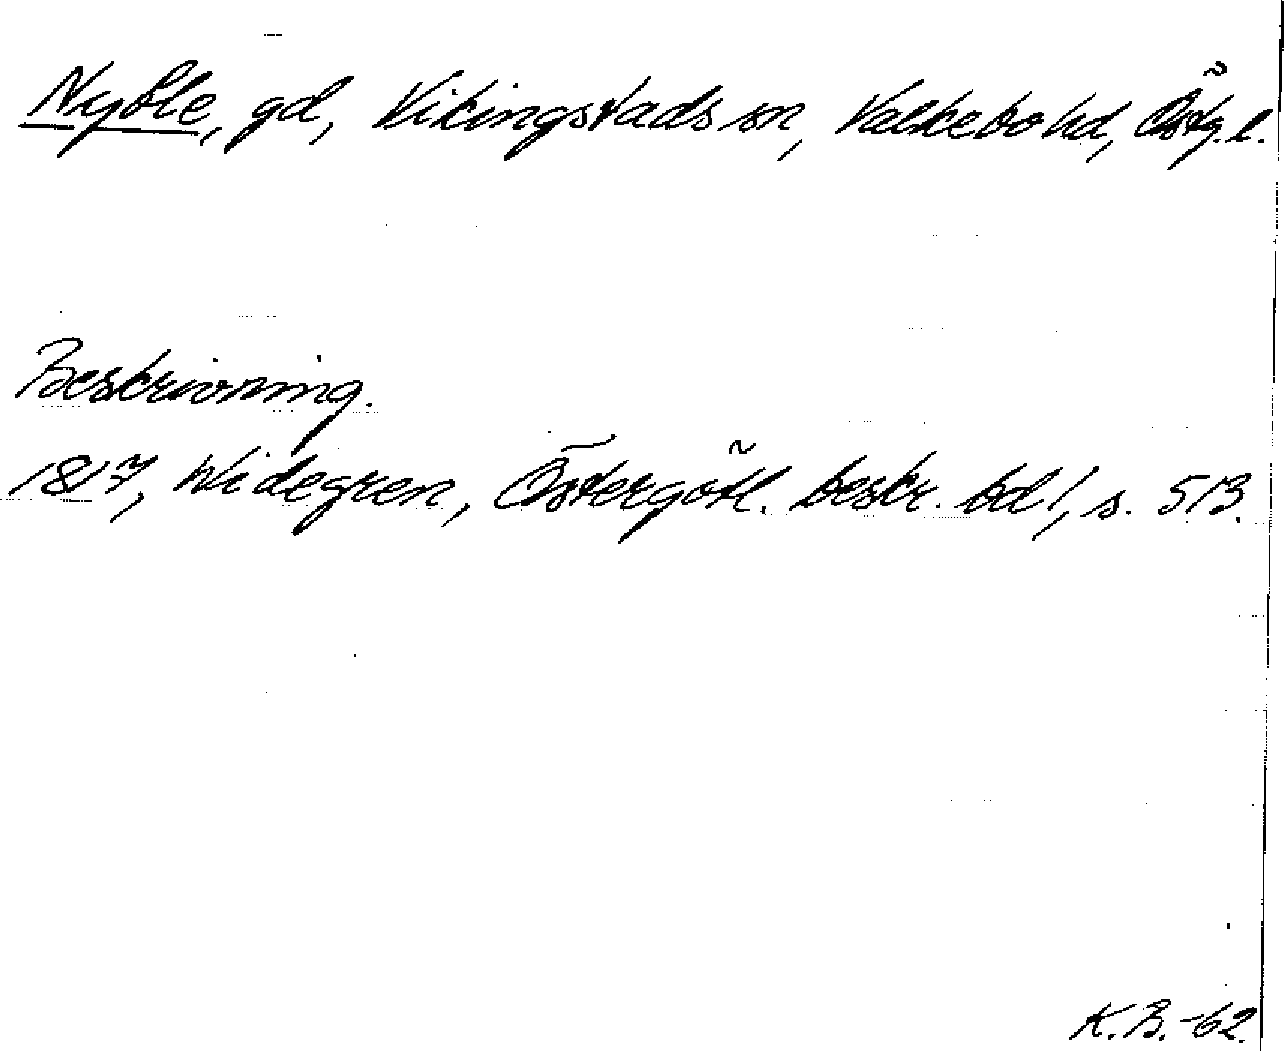 Nyble, gd, Vikingstads sn, Valkebo hd, Östg. l.
Beskrivning.
1817, Widegren, Östergötl. beskr. bd 1, s. 513.
K. B. -62.